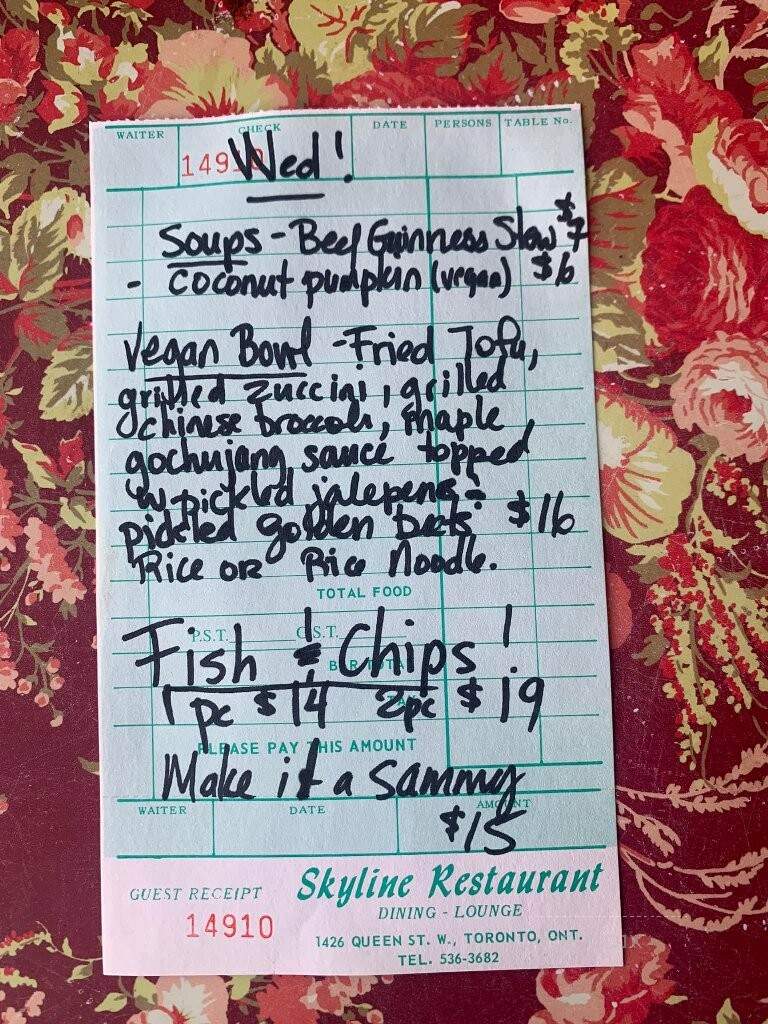 WAITER CHECK DATE PERSONS TABLE No.
149
Wed!
Soups - Beef Guinness Stew $7
- coconut pumpkin (vegan) $6
Vegan Bowl - Fried Tofu,
grilled zuccini, grilled
chinese broccoli, maple
gochujang sauce topped
w pickled jalepeno &
pickled golden beets $16
Rice or Rice Noodle.
TOTAL FOOD
P.S.T. G.S.T.
Fish & Chips!
1 pc $14 2pc $19
PLEASE PAY THIS AMOUNT
Make it a Sammy
WAITER DATE AMOUNT
$15
GUEST RECEIPT Skyline Restaurant
14910 DINING - LOUNGE
1426 QUEEN ST. W., TORONTO, ONT.
TEL. 536-3682